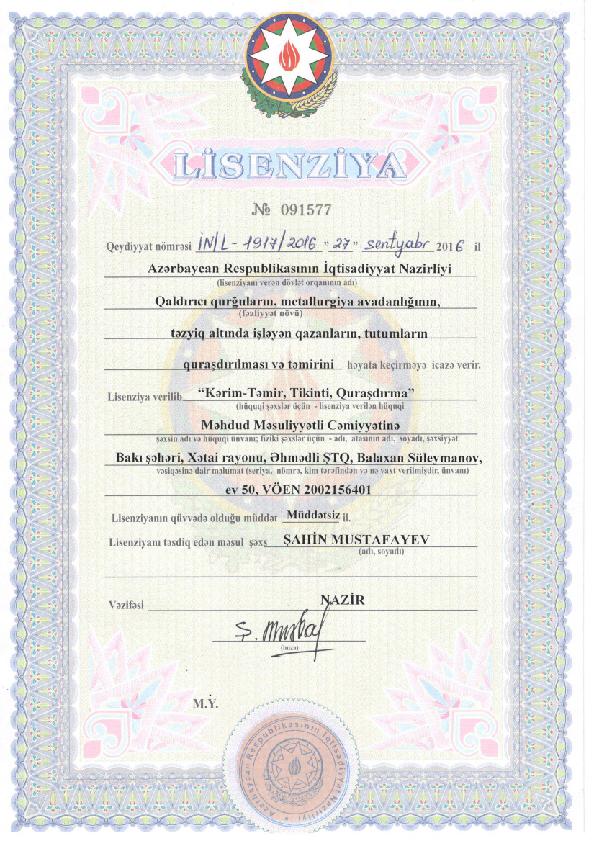 LİSENZİYA
№ 091577
Qeydiyyat nömrəsi İN/L - 1917/2016 "27" sentyabr 2016 il
Azərbaycan Respublikasının İqtisadiyyat Nazirliyi
(lisenziyanı verən dövlət orqanının adı)
Qaldırıcı qurğuların, metallurgiya avadanlığının,
(fəaliyyət növü)
təzyiq altında işləyən qazanların, tutumların
quraşdırılması və təmirini həyata keçirməyə icazə verir.
Lisenziya verilib "Kərim-Təmir, Tikinti, Quraşdırma"
(hüquqi şəxslər üçün - lisenziya verilən hüquqi
Məhdud Məsuliyyətli Cəmiyyətinə
şəxsin adı və hüquqi ünvanı; fiziki şəxslər üçün - adı, atasının adı, soyadı, şəxsiyyət
Bakı şəhəri, Xətai rayonu, Əhmədli ŞTQ, Balaxan Süleymanov,
vəsiqəsinə dair məlumat (seriya, nömrə, kim tərəfindən və nə vaxt verilmişdir, ünvanı)
ev 50, VÖEN 2002156401
Lisenziyanın qüvvədə olduğu müddət Müddətsiz il.
Lisenziyanı təsdiq edən məsul şəxs ŞAHİN MUSTAFAYEV
(adı, soyadı)
Vəzifəsi NAZİR
(imza)
M.Y.
Azərbaycan Respublikasının İqtisadiyyat Nazirliyi